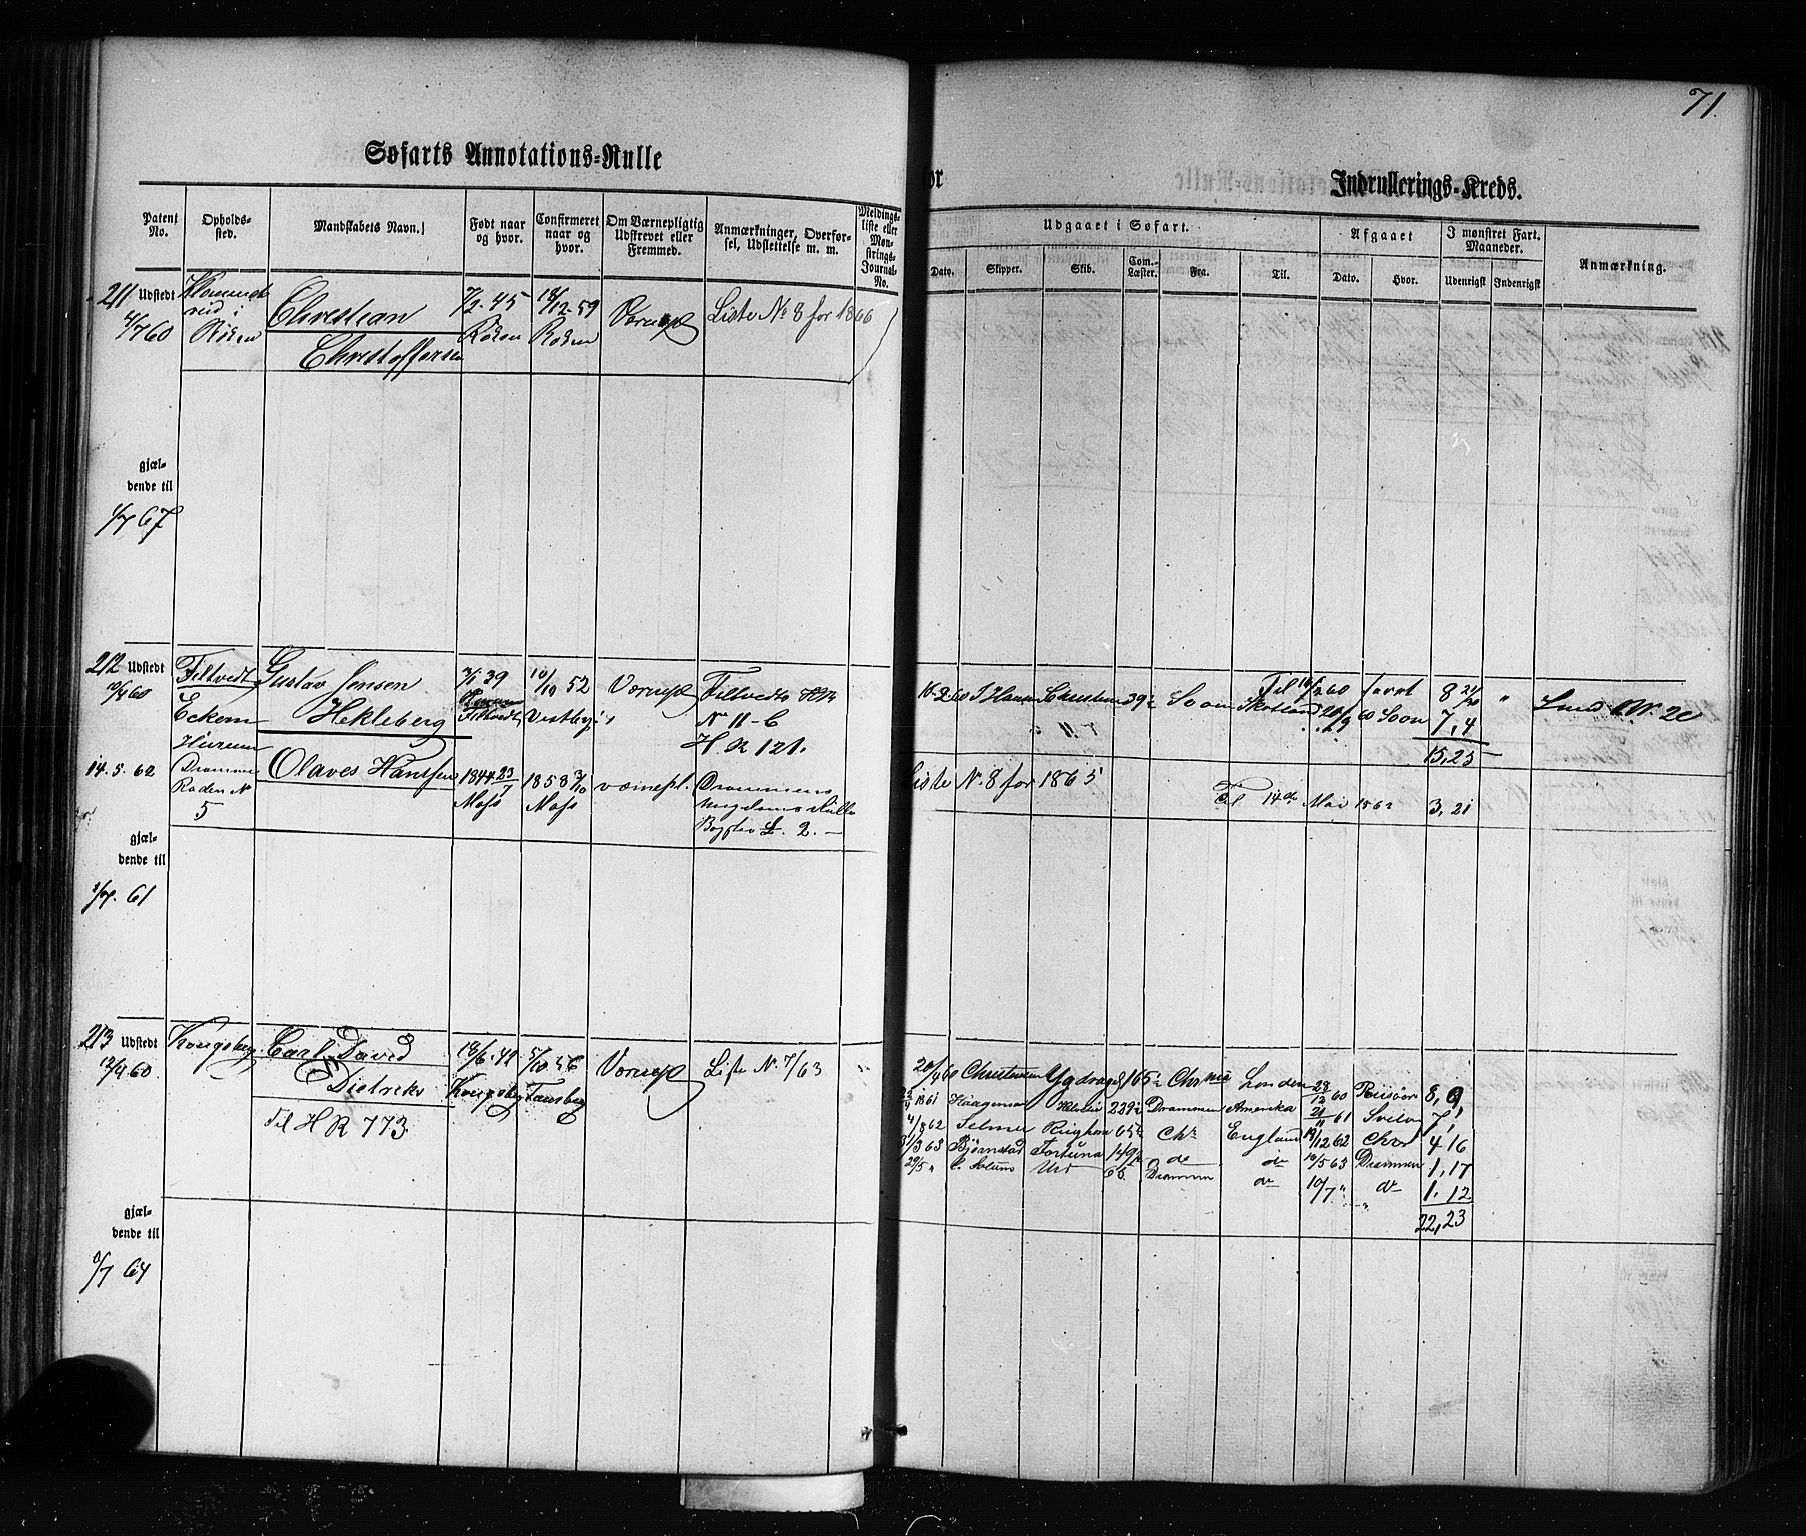 71.
Søfarts Annotations-Rulle
for Indrullerings-Kreds.
Patent No.
Opholdssted.
Mandskabets Navn.
Født naar og hvor.
Confirmeret naar og hvor.
Om Værnepligtig Udskrevet eller Fremmed.
Anmærkninger, Overførsel, Udslettelse m. m.
Meldingsliste eller Mønstrings-Journal-No.
Udgaaet i Søfart.
Afgaaet
I mønstret Fart. Maaneder.
Anmærkning.
Dato.
Skipper.
Skib.
Com. Læster.
Fra.
Til.
Dato.
Hvor.
Udenrigsk
Indenrigsk
211 Udstedt
4/7 60
Røken
Christian
Christoffersen
7/2. 45
Røken
18/12. 59
Røken
Værnepl
Liste No 8 for 1866
gjældende til
1/7 67
212 Udstedt
60
Filtvedt
Eckern
Hurum
Gustav Jensen
Hekleberg
7/1 39
Filtvedt
10/10 52
Vestby
Værnepl
Filtvedt
No 11-C
H. R 121.
16-2-60 J. Hansen Christian 39½ Soon Skotland
Til 16/2 60 faret 8
20/9 60 Soon 7,4
15,25
14. 5. 62
Drammen
Roden No
5
Olaves Hanssen
1844 23/7
Moss
1858 3/10
Moss
værnepl.
Drammens
Ungdoms Rulle
Bogstav L. 2.
Liste No. 8 for 1865
Til 14de Mai 1862 3, 21
gjældende til
1/7. 61
213 Udstedt
12/9 60
Kongsberg
Carl David
Dietrichs
til H R 773
18/6. 41
Kongsberg
5/10 56
Tønsberg
Værnepl
Liste No. 7/63
20/9 60 Christensen Ygdrasil 165½ Chr London 28/12 60 Risøer 8, 9
1861 Haagensen 229½ Drammen Amerika 21/11 61 Svelv 7,
4/8 62 Selmer 65½ Chr England 19/12 62 Chra 4 16
31/3 63 Bjørnstad Fortuna 149½ do do 10/5 63 Drammen 1, 17
29/5 " Urd Drammen do 10/7 " do 1, 12
22, 23
gjældende til
1/7 64